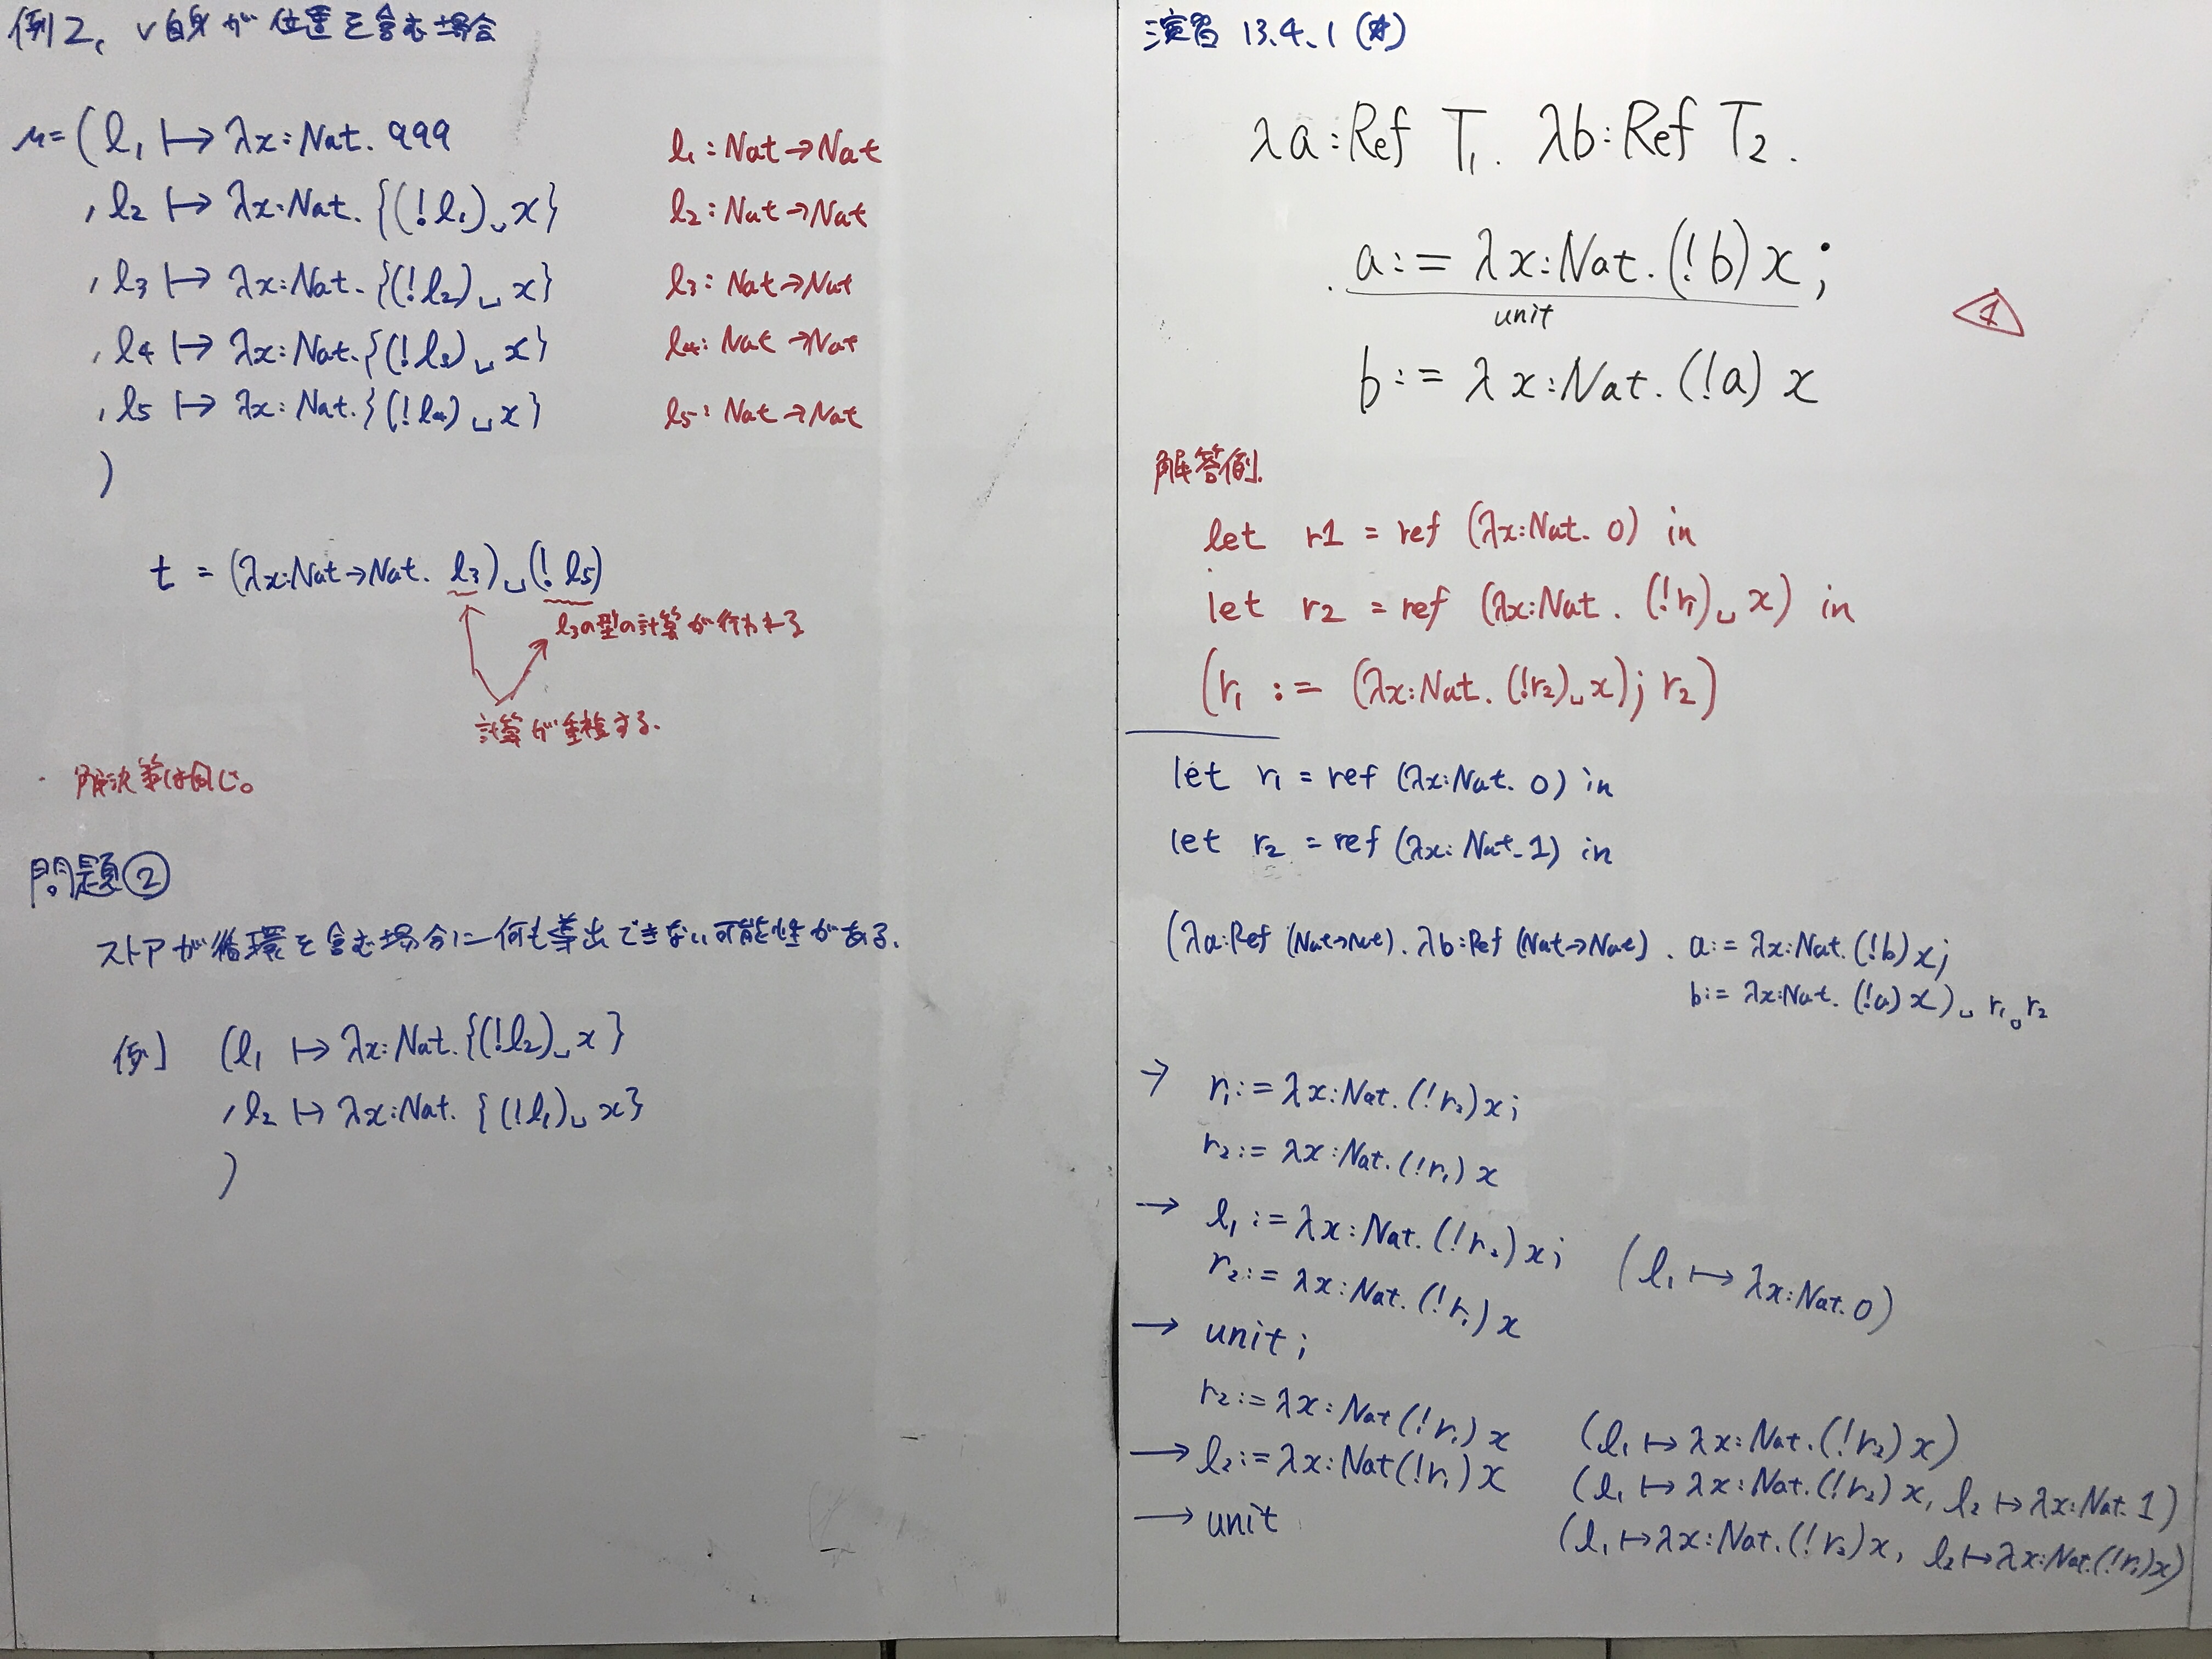 例2、 v自身が位置を含む場合
μ=(l₁ ↦ λx:Nat. 999
, l₂ ↦ λx:Nat. {(!l₁)␣x}
, l₃ ↦ λx:Nat. {(!l₂)␣x}
, l₄ ↦ λx:Nat. {(!l₃)␣x}
, l₅ ↦ λx:Nat. {(!l₄)␣x}
)
l₁ : Nat→Nat
l₂ : Nat→Nat
l₃ : Nat→Nat
l₄ : Nat→Nat
l₅ : Nat→Nat
t = (λx:Nat→Nat. l₃)␣(!l₅)
l₃の型の計算が行われる
計算が重複する.
・解決策は同じ。
問題②
ストアが循環を含む場合に何も導出できない可能性がある.
例] (l₁ ↦ λx:Nat.{(!l₂)␣x}
, l₂ ↦ λx:Nat. {(!l₁)␣x}
)
演習 13.4.1 (☆)
λa:Ref T₁. λb:Ref T₂.
a:= λx:Nat.(!b)x;
unit
b:= λx:Nat.(!a)x
1
解答例.
let r1 = ref (λx:Nat. 0) in
let r2 = ref (λx:Nat. (!r₁)␣x) in
(r₁ := (λx:Nat. (!r₂)␣x); r₂)
let r₁ = ref (λx:Nat. 0) in
let r₂ = ref (λx:Nat. 1) in
(λa:Ref (Nat→Nat). λb:Ref (Nat→Nat). a:= λx:Nat.(!b)x;
b:= λx:Nat. (!a)x)␣r₁␣r₂
→ r₁:= λx:Nat.(!r₂)x;
r₂:= λx:Nat.(!r₁)x
→ l₁:= λx:Nat.(!r₂)x;
r₂:= λx:Nat.(!r₁)x (l₁ ↦ λx:Nat.0)
→ unit;
r₂:= λx:Nat(!r₁)x (l₁ ↦ λx:Nat.(!r₂)x)
→ l₂:= λx:Nat(!r₁)x (l₁ ↦ λx:Nat.(!r₂)x, l₂ ↦ λx:Nat.1)
→ unit (l₁ ↦ λx:Nat.(!r₂)x, l₂ ↦ λx:Nat.(!r₁)x)